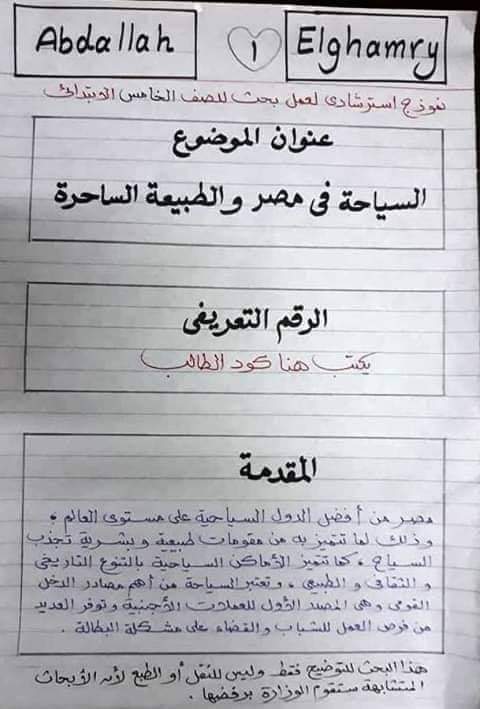 Abdallah
١
Elghamry
نموذج استرشادى لعمل بحث للصف الخامس الابتدائى
عنوان الموضوع
السياحة فى مصر والطبيعة الساحرة
الرقم التعريفى
يكتب هنا كود الطالب
المقدمة
مصر من أفضل الدول السياحية على مستوى العالم ،
وذلك لما تتميز به من مقومات طبيعية وبشرية تجذب
السياح ، كما تتميز الأماكن السياحية بالتنوع التاريخى
والثقافى والطبيعى ، وتعتبر السياحة من أهم مصادر الدخل
القومى وهى المصدر الأول للعملات الأجنبية وتوفر العديد
من فرص العمل للشباب والقضاء على مشكلة البطالة .
هذا البحث للتوضيح فقط وليس للنقل أو الطبع لأن الأبحاث
المتشابهة ستقوم الوزارة برفضها .